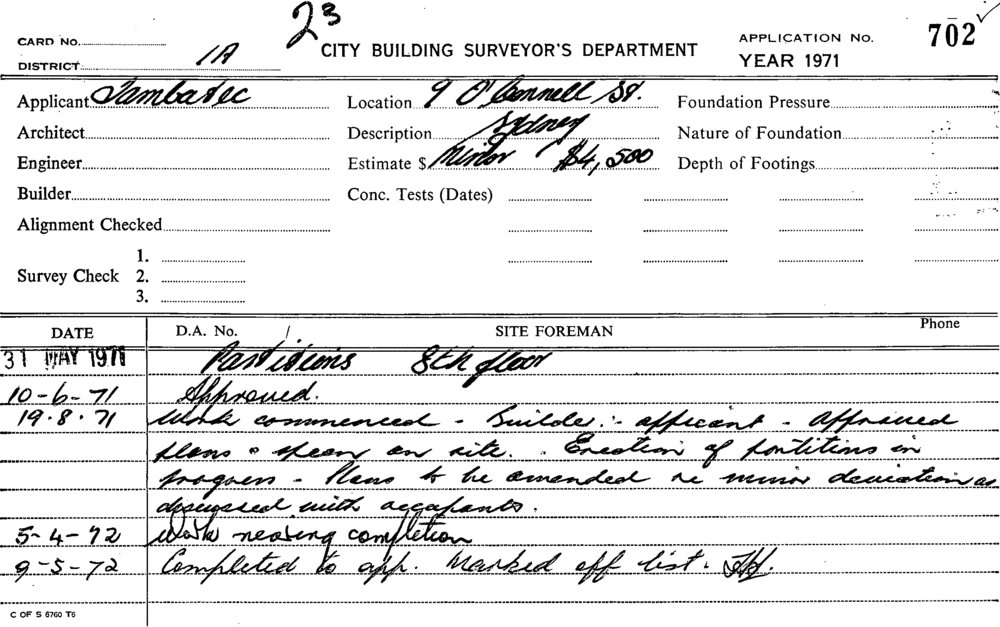 23
CARD No. CITY BUILDING SURVEYOR'S DEPARTMENT APPLICATION No. 702
DISTRICT 1A YEAR 1971
Applicant Tambatec Location 9 O'Connell St. Foundation Pressure
Architect Description Sydney Nature of Foundation
Engineer Estimate $ Minor $4,500 Depth of Footings
Builder Conc. Tests (Dates)
Alignment Checked
1.
Survey Check 2.
3.
DATE D.A. No. / SITE FOREMAN Phone
31 MAY 1971 Partitions 8th floor
10-6-71 Approved.
19.8.71 Work commenced - Builder:- applicant - Approved
plans & specn on site. - Erection of partitions in
progress - Plans to be amended re minor deviation as
discussed with occupants.
5-4-72 Work nearing completion
9-5-72 Completed to app. Marked off list.
C OF S 6760 T6